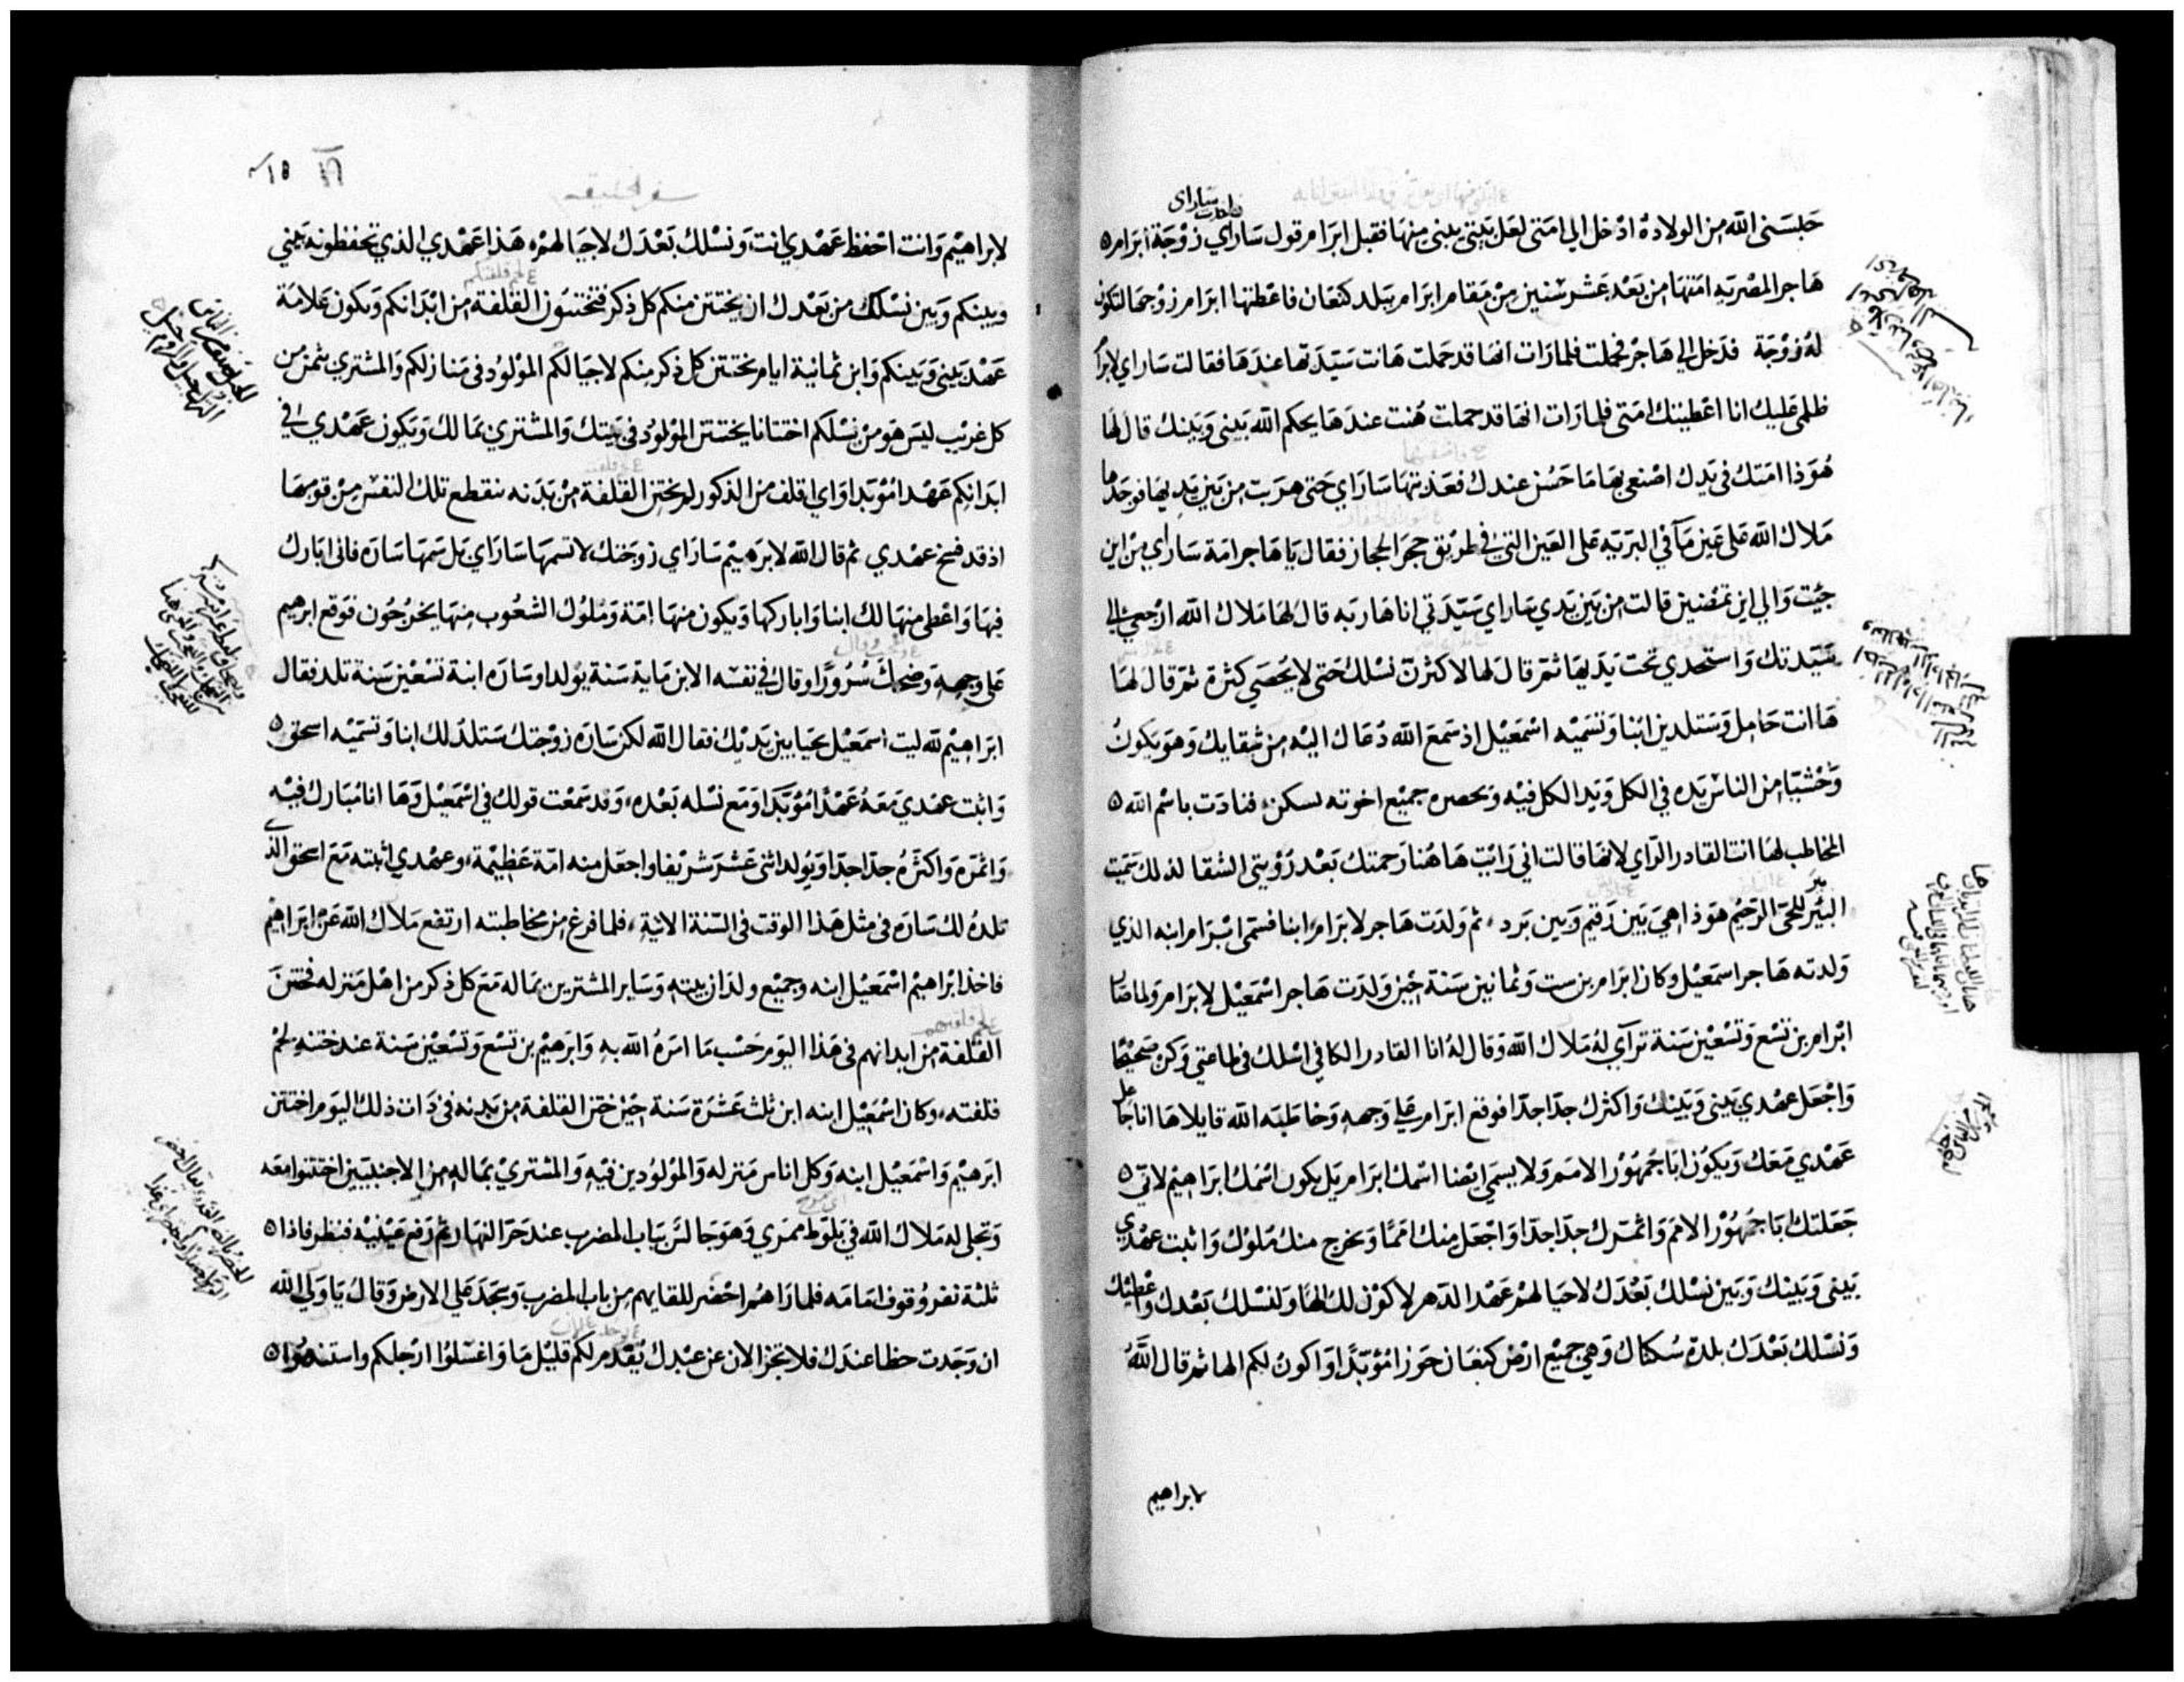 حبسنى الله من الولادة ادخل الي امتى لعل بيتى يبنى منها فقبل ابرام قول ساراي زوجة ابرام
فاخدت ساراى
هاجر المصريه امتها من بعد عشر سنين من مقام ابرام ببلد كنعان فاعطتها ابرام زوجها لتكون
له زوجة فدخل الي هاجر فحملت فلما رات انها قد حملت هانت سيدتها عندها فقالت ساراي لابرام
ظلمى عليك انا اعطيتك امتى فلما رات انها قد حملت هنت عندها يحكم الله بينى وبينك قال لها
هوذا امتك في يدك اصنعي بها ما حسن عندك فعذبتها ساراي حتى هربت من بين يديها فوجدها
ملاك الله على عين مآ في البريه على العين التي في طريق حجر الحجاز فقال يا هاجر امة ساراي من اين
جيت والي اين تمضين قالت من بين يدي ساراي سيدتي انا هاربه قال لها ملاك الله ارجعي الي
سيدتك واستخدي تحت يديها ثم قال لها لاكثرن نسلك حتى لا يحصى كثرة ثم قال لها
ها انت حامل وستلدين ابنا وتسميه اسمعيل اذ سمع الله دعاك اليه من شقايك وهو يكون
وحشيا من الناس يده في الكل ويد الكل فيه وبحصره جميع اخوته يسكن فنادت باسم الله
المخاطب لها انت القادر الراي لانها قالت اني رايت هاهنا رحمتك بعد رويتي الشقا لذلك سميت
البير للحى الرحيم هوذا هي بين رقيم وبين برد ثم ولدت هاجر لابرام ابنا فسمى ابرام ابنه الذي
ولدته هاجر اسمعيل وكان ابرام بن ست وثمانين سنة حين ولدت هاجر اسمعيل لابرام ولما صار
ابرام بن تسع وتسعين سنة ترآي له ملاك الله وقال له انا القادر الكافي اسلك في طاعتي وكن صحيحا
واجعل عهدي بيني وبينك واكثرك جدا جدا فوقع ابرام علي وجهه وخاطبه الله قايلا ها انا جاعل
عهدي معك ويكون ابا جمهور الامم ولا يسمى ايضا اسمك ابرام بل يكون اسمك ابراهيم لاني
جعلتك ابا جمهور الامم واثمرك جدا جدا واجعل منك امما ويخرج منك ملوك واثبت عهدي
بيني وبينك وبين نسلك بعدك لاجيالهم عهد الدهر لاكون لك الها ولنسلك بعدك واعطيك
ونسلك بعدك بلد سكناك وهي جميع ارض كنعان حوزا موبدا واكون لكم الها ثم قال الله
لابراهيم
سفر الخليقه
١٥
لابراهيم وانت احفظ عهدي انت ونسلك بعدك لاجيالهم هذا عهدي الذي تحفظونه بيني
وبينكم وبين نسلك من بعدك ان يختتن منكم كل ذكر فتختنون القلفة من ابدانكم ويكون علامة
عهد بيني وبينكم وابن ثمانية ايام يختتن كل ذكر منكم لاجيالكم المولود في منازلكم والمشتري بثمن من
كل غريب ليس هو من نسلكم اختتانا يختتن المولود في بيتك والمشتري بمالك ويكون عهدي في
ابدانكم عهدا موبدا واي اقلف من الذكور لم يختن القلفة من بدنه ينقطع تلك النفس من قومها
اذ قد فسخ عهدي ثم قال الله لابرهيم ساراي زوجتك لا تسمها ساراي بل سمها ساره فاني ابارك
فيها واعطي منها لك ابنا واباركها ويكون منها امة وملوك الشعوب منها يخرجون فوقع ابرهيم
على وجهه وضحك سرورا وقال في نفسه الابن ماية سنة يولد او ساره ابنة تسعين سنة تلد فقال
ابراهيم لله ليت اسمعيل يحيا بين يديك فقال الله لكن ساره زوجتك ستلد لك ابنا وتسميه اسحق
واثبت عهدي معه عهدا موبدا ومع نسله بعده وقد سمعت قولك في اسمعيل وها انا مبارك فيه
واثمره واكثره جدا جدا ويولد اثنى عشر شريفا واجعل منه امة عظيمة وعهدي اثبته مع اسحق الذي
تلده لك ساره في مثل هذا الوقت في السنة الاتية فلما فرغ من مخاطبته ارتفع ملاك الله عن ابراهيم
فاخذ ابراهيم اسمعيل ابنه وجميع ولدان بيته وساير المشترين بماله مع كل ذكر من اهل منزله فختن
القلفة من ابدانهم في هذا اليوم حسب ما امره الله به وابرهيم بن تسع وتسعين سنة عند ختنه لحم
قلفته وكان اسمعيل ابنه ابن ثلث عشرة سنة حين ختن القلفة من بدنه في ذات ذلك اليوم اختتن
ابرهيم واسمعيل ابنه وكل اناس منزله والمولودين فيه والمشتري بماله من الاجنبيين اختتنوا معه
وتجلى له ملاك الله في بلوط ممري وهو جالس بباب المضرب عند حر النهار ثم رفع عينيه فنظر فاذا
ثلثة نفر وقوف امامه فلما راهم احضر للقايهم من باب المضرب وسجد علي الارض وقال يا ولي الله
ان وجدت حظا عندك فلا تجز الان عن عبدك يقدم لكم قليل ما واغسلوا ارجلكم واستندوا